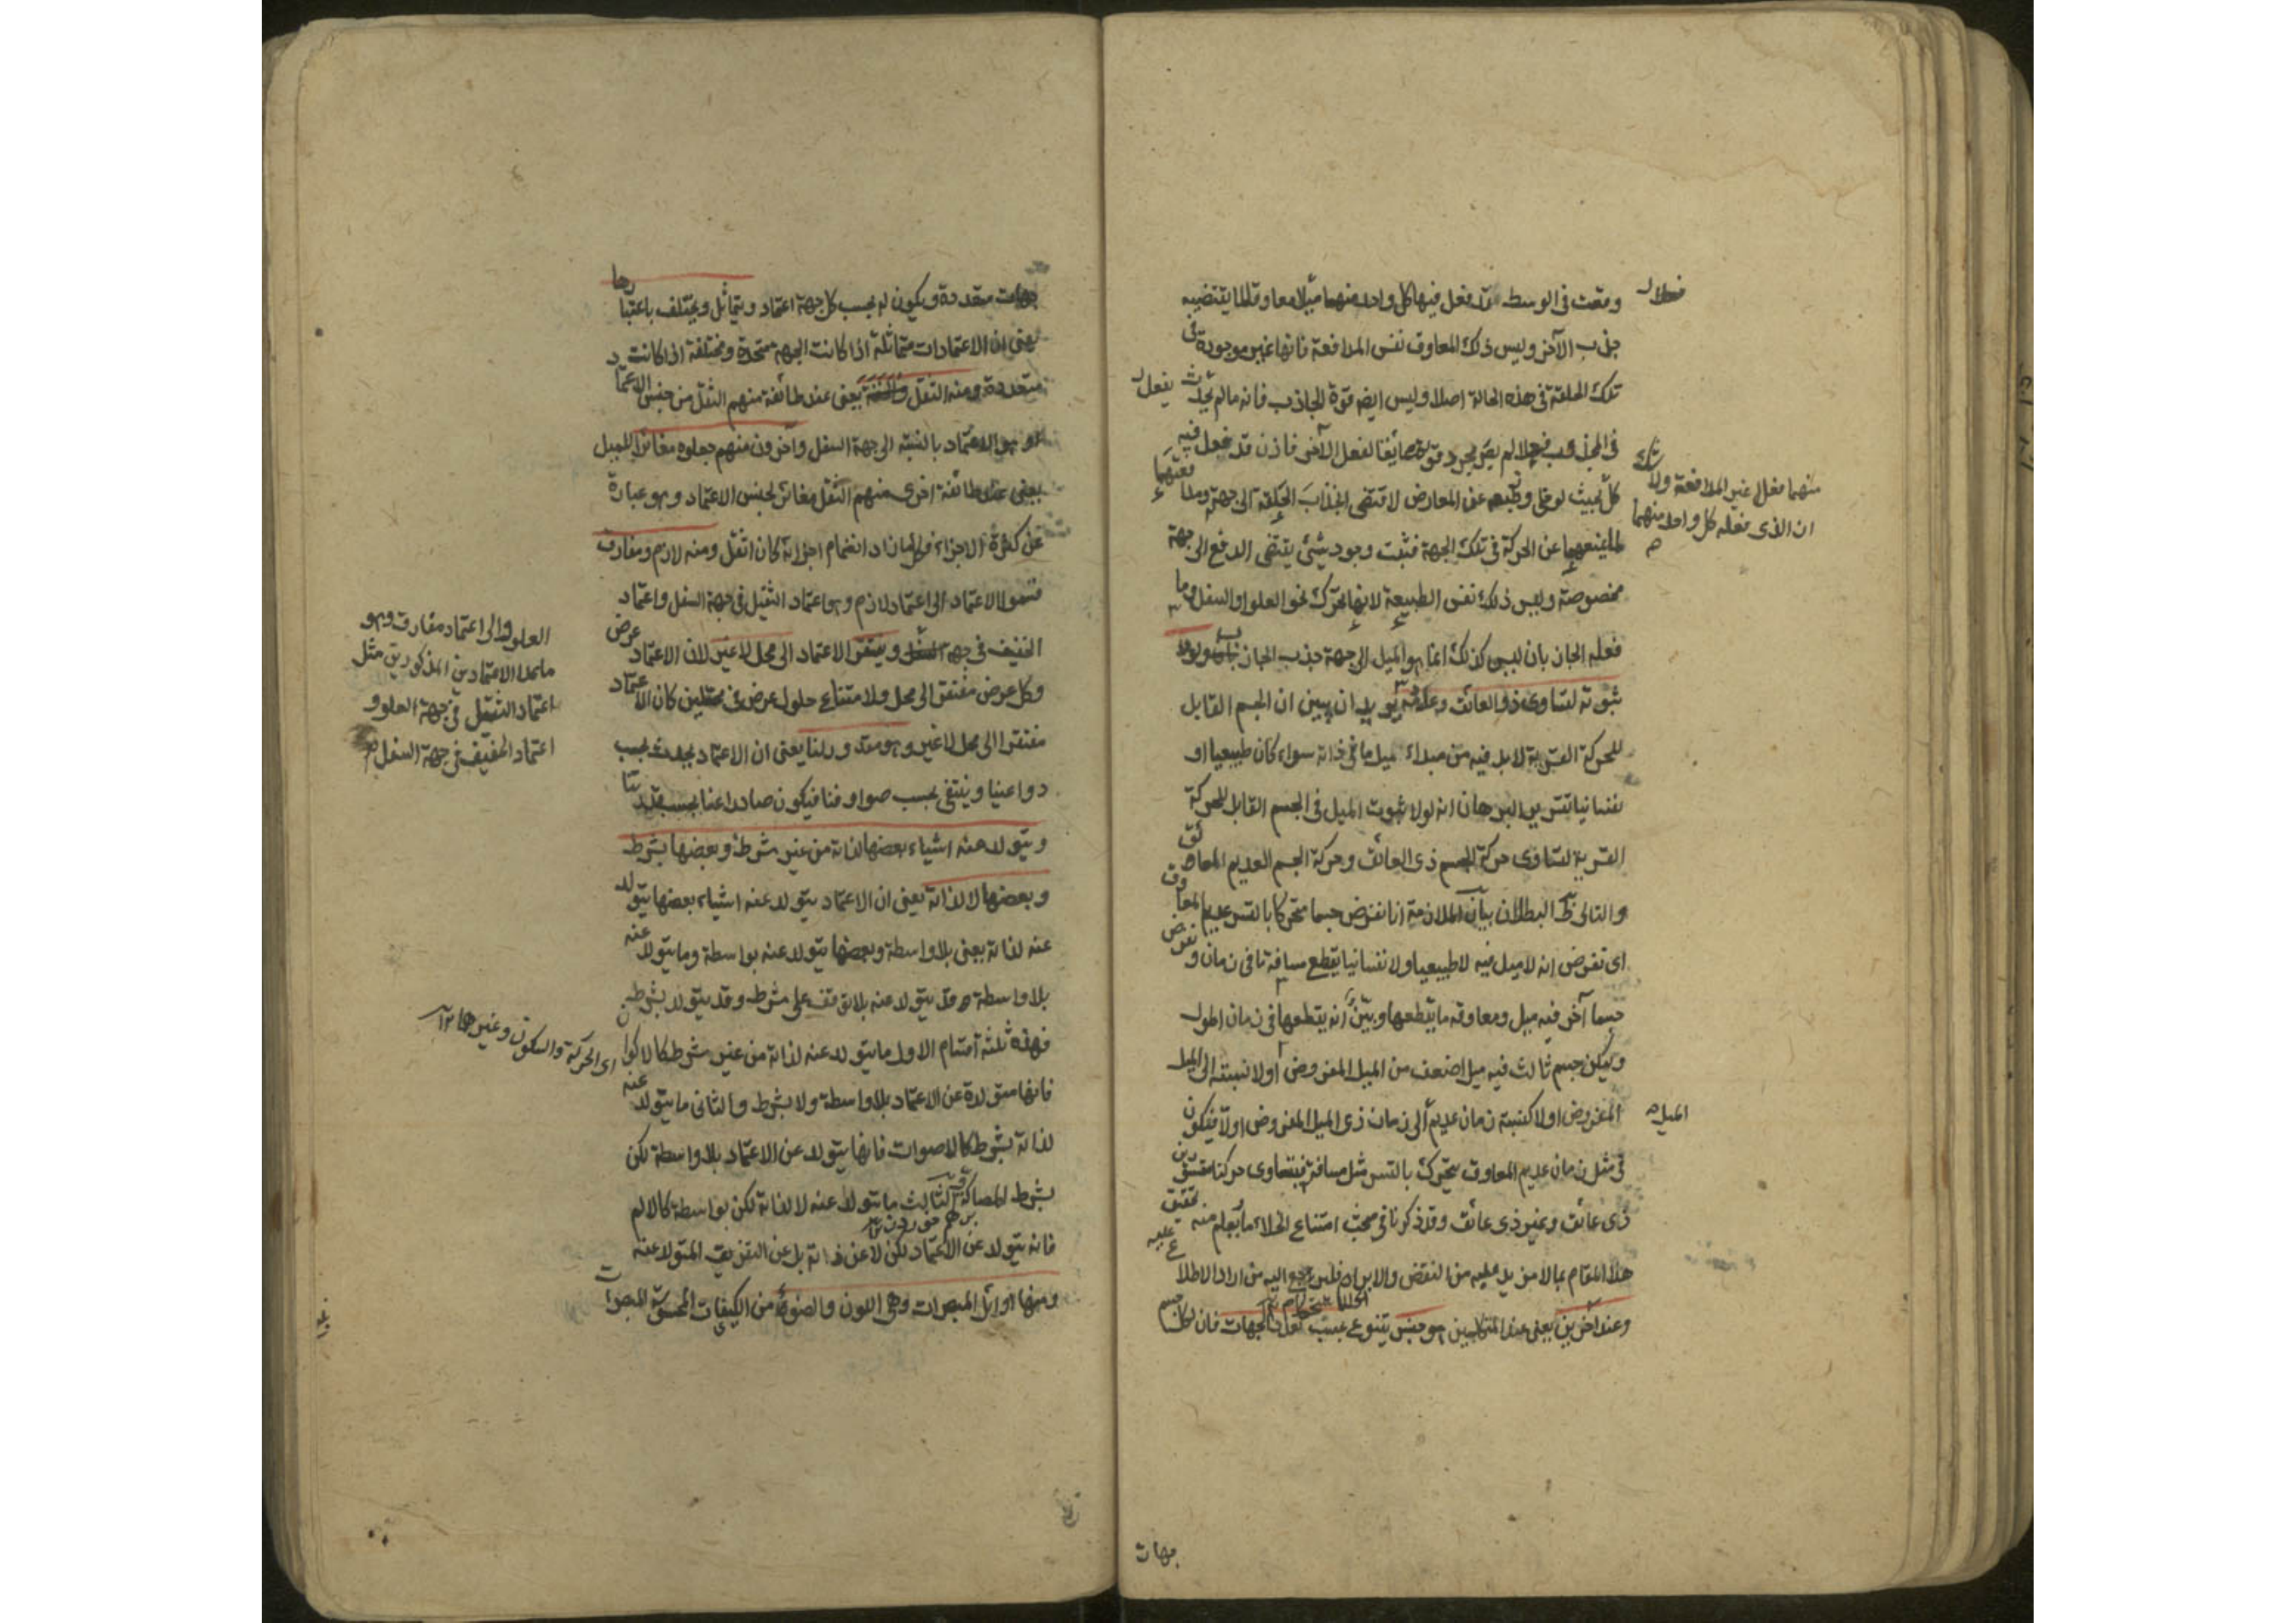 ووقعت في الوسط قد فعل فيها كل واحد منهما ميلا معاوقا لما يقتضيه
جذب الآخر وليس ذلك المعاوق نفس المدافعة فانها غير موجودة في
تلك الحلقة في هذه الحالة اصلا وليس ايضا قوة الجاذب فانه ما لم يحدث
في المجذوب لم يصر مجرد قوته عائقا لفعل الآخر فاذن قد فعل فيه
كل بحيث لو خلى عن المعارض لاقتضى انجذاب الحلقة الى جهته
عن الحركة في تلك الجهة فثبت وجود شيء يقتضى الدفع الى جهة
مخصوصة وليس ذلك نفس الطبيعة لانها تحرك نحو العلو او السفل وما
فعله الجاذبان ليس كذلك انما هو الميل الى جهة جذب الجاذب ولولا
ثبوته لتساوى ذو العائق وعادمه يريد ان يبين ان الجسم القابل
للحركة القسرية لابد فيه من مبداء ميل ما في ذاته سواء كان طبيعيا او
نفسانيا تقرير البرهان انه لولا ثبوت الميل في الجسم القابل للحركة
القسرية لتساوى حركة الجسم ذى العائق وحركة الجسم العديم العائق
والتالى ظ البطلان بيان الملازمة انا نفرض جسما متحركا بالقسر عديم المعاوق
اى نفرض انه لا ميل فيه لا طبيعيا ولا نفسانيا يقطع مسافة ما في زمان ونفرض
جسما آخر فيه ميل ومعاوقة ما يقطعها وبين انه يقطعها في زمان اطول
وليكن جسم ثالث فيه ميل اضعف من الميل المفروض اولا نسبته الى الميل
المفروض اولا كنسبة زمان عديم الى زمان ذى الميل المفروض اولا فيكون
في مثل زمان عديم المعاوق يتحرك بالقسر مثل مسافته فيتساوى حركتا مقسورين
ذى عائق وغير ذى عائق وقد ذكرنا في مبحث امتناع الخلاء ما يعلم منه تحقيق
هذا المقام بما لا مزيد عليه من النقض والابرام فليرجع اليه من اراد الاطلاع عليه
وعند آخرين يعنى عند المتكلمين هو جنس يتنوع بحسب تعدد الجهات فان لكل جسم
منهما فعل غير المدافعة ولا شك
ان الذى فعله كل واحد منهما
الميل
جهات
جهات متعددة ويكون له بحسب كل جهة اعتماد ويتماثل ويختلف باعتبارها
يعنى ان الاعتمادات متماثلة اذا كانت الجهة متحدة ومختلفة اذا كانت
متعددة ومنه الثقل يعنى عند طائفة منهم الثقل من جنس الاعتماد
هو الاعتماد بالنسبة الى جهة السفل وآخرون منهم جعلوه مغائرا للميل
يعنى عند طائفة اخرى منهم الثقل مغائر لجنس الاعتماد وهو عبارة
عن كثرة الاجزاء فكلما زاد انضمام اجزائه كان اثقل ومنه لازم ومفارق
قسموا الاعتماد الى اعتماد لازم وهو اعتماد الثقيل في جهة السفل واعتماد
الخفيف في جهة ويفتقر الاعتماد الى محل لا غير لان الاعتماد عرض
وكل عرض مفتقر الى محل ولامتناع حلول عرض في محلين كان الاعتماد
مفتقرا الى محل لا غير وهو مقدور لنا يعنى ان الاعتماد يحدث بحسب
دواعينا وينتفى بحسب صوارفنا فيكون صادرا عنا بحسب قدرتنا
ويتولد عنه اشياء بعضها لذاته من غير شرط وبعضها بشرط
وبعضها لا لذاته يعنى ان الاعتماد يتولد عنه اشياء بعضها يتولد
عنه لذاته يعنى بلا واسطة وبعضها يتولد عنه بواسطة وما يتولد عنه
بلا واسطة قد يتولد عنه بلا توقف على شرط وقد يتولد بشرط
فهذه ثلثة اقسام الاول ما يتولد عنه لذاته من غير شرط كالاكوان
فانها متولدة عن الاعتماد بلا واسطة ولا بشرط والثانى ما يتولد عنه
لذاته بشرط كالاصوات فانها يتولد عن الاعتماد بلا واسطة لكن
بشرط المصاكة الثالث ما يتولد عنه لا لذاته لكن بواسطة كالالم
فانه يتولد عن الاعتماد لكن لا عن ذاته بل عن التفريق المتولد عنه
ومنها اوائل المبصرات وهى اللون والضوء من الكيفيات المحسوسة المبصرات
العلو والى اعتماد مفارق وهو
ما عدا الاعتمادين المذكورين مثل
اعتماد الثقيل في جهة العلو و
اعتماد الخفيف في جهة السفل
اى الحركة والسكون وغيرهما